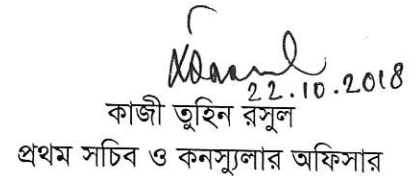 22.10.2018
কাজী তুহিন রসুল
প্রথম সচিব ও কনস্যুলার অফিসার